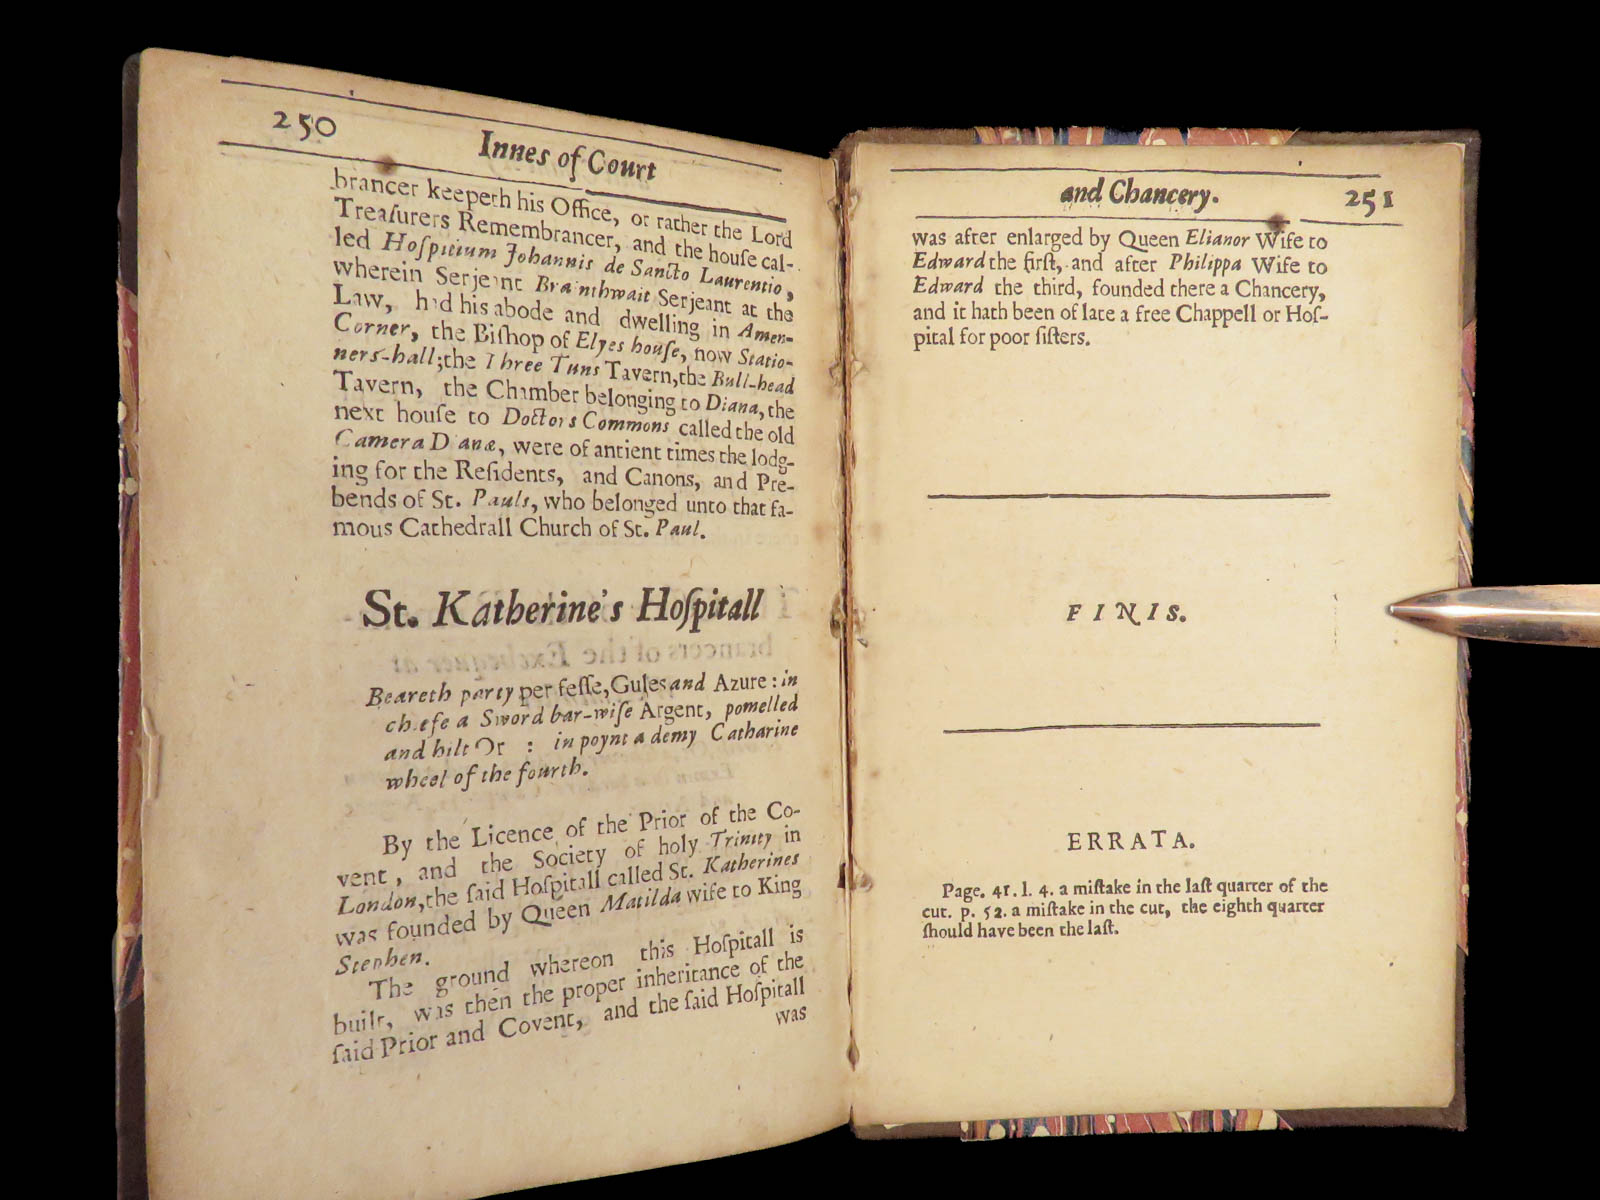 250
Innes of Court
brancer keepeth his Office, or rather the Lord
Treaſurers Remembrancer, and the houſe cal-
led Hoſpitium Johannis de Sancto Laurentio,
wherein Serjeant Brainthwait Serjeant at the
Law, had his abode and dwelling in Amen-
Corner, the Biſhop of Elyes houſe, now Statio-
ners-hall; the Three Tuns Tavern, the Bull-head
Tavern, the Chamber belonging to Diana, the
next houſe to Doctors Commons called the old
Camera Dianæ, were of antient times the lodg-
ing for the Reſidents, and Canons, and Pre-
bends of St. Pauls, who belonged unto that fa-
mous Cathedrall Church of St. Paul.
St. Katherine's Hoſpitall
Beareth party per feſſe, Gules and Azure : in
cheefe a Sword bar-wiſe Argent, pomelled
and hilt Or : in poynt a demy Catharine
wheel of the fourth.
By the Licence of the Prior of the Co-
vent, and the Society of holy Trinity in
London, the ſaid Hoſpitall called St. Katherines
was founded by Queen Matilda wife to King
Stephen.
The ground whereon this Hoſpitall is
built, was then the proper inheritance of the
ſaid Prior and Covent, and the ſaid Hoſpitall
was
and Chancery.
251
was after enlarged by Queen Elianor Wife to
Edward the firſt, and after Philippa Wife to
Edward the third, founded there a Chancery,
and it hath been of late a free Chappell or Hoſ-
pital for poor ſiſters.
FINIS.
ERRATA.
Page. 41. l. 4. a miſtake in the laſt quarter of the
cut. p. 52. a miſtake in the cut, the eighth quarter
ſhould have been the laſt.